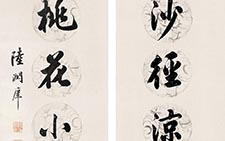 沙徑涼
桃花小
陸潤庠